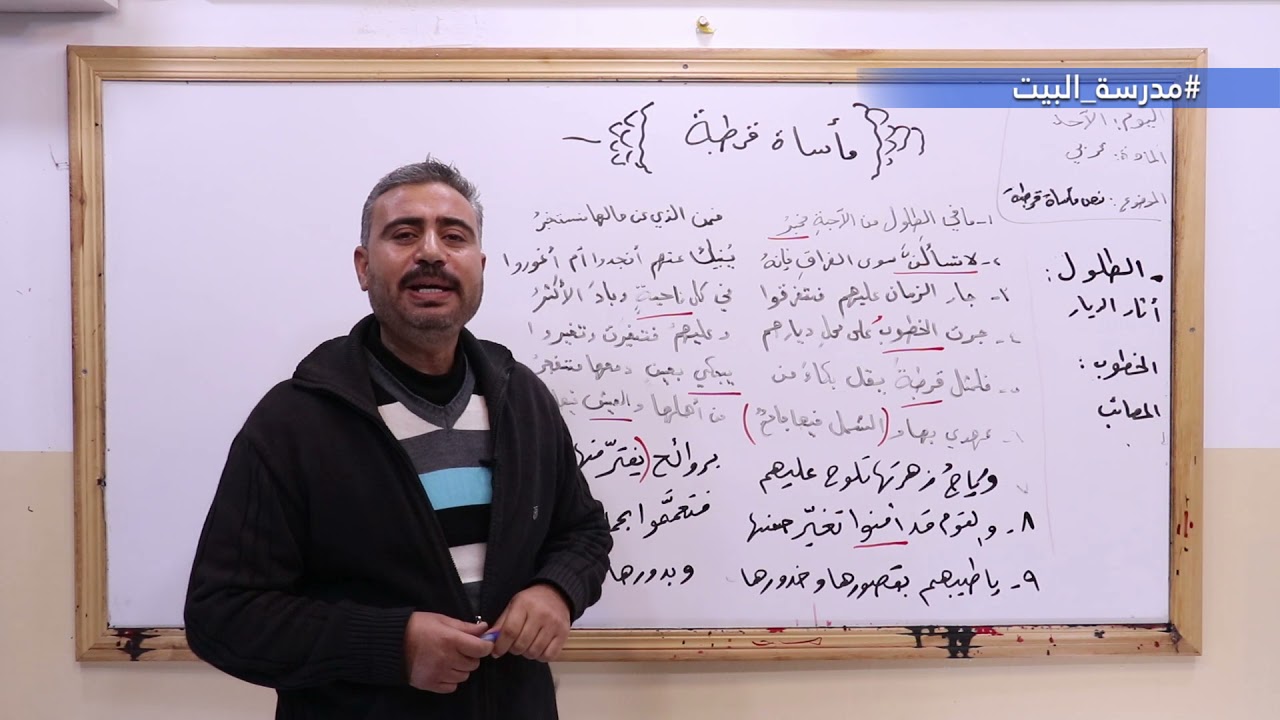 #مدرسة_البيت
اليوم: الأحد
المادة: عربي
الموضوع: نص مأساة قرطبة
مأساة قرطبة
١- ما في الطلول من الأحبةِ مخبرُ فمن الذي عن حالها نستخبرُ
٢- لا تسألنَّ سوى الفراقِ فإنهُ يُنبيكَ عنهم أنجدوا أم أغوروا
٣- جار الزمان عليهم فتفرقوا في كل ناحيةٍ وبادَ الأكثرُ
٤- جرت الخطوبُ على محلِ ديارهم وعليهمُ فتغيرت وتغيروا
٥- فلمثل قرطبةٍ يقل بكاءُ من يبكي بعينٍ دمعها متفجرُ
٦- عهدي بها و(الشمل فيها جامعٌ) من أهلها والعيش فيها
٧- ورياحُ زهرتها تلوح عليهم بروائحٍ (يفترّ منها
٨- والقوم قد أمنوا تغيّر حسنها فتعمَّموا
٩- يا طيبهم بقصورها وخدورها وبدورها
• الطلول:
آثار الديار
الخطوب:
المصائب